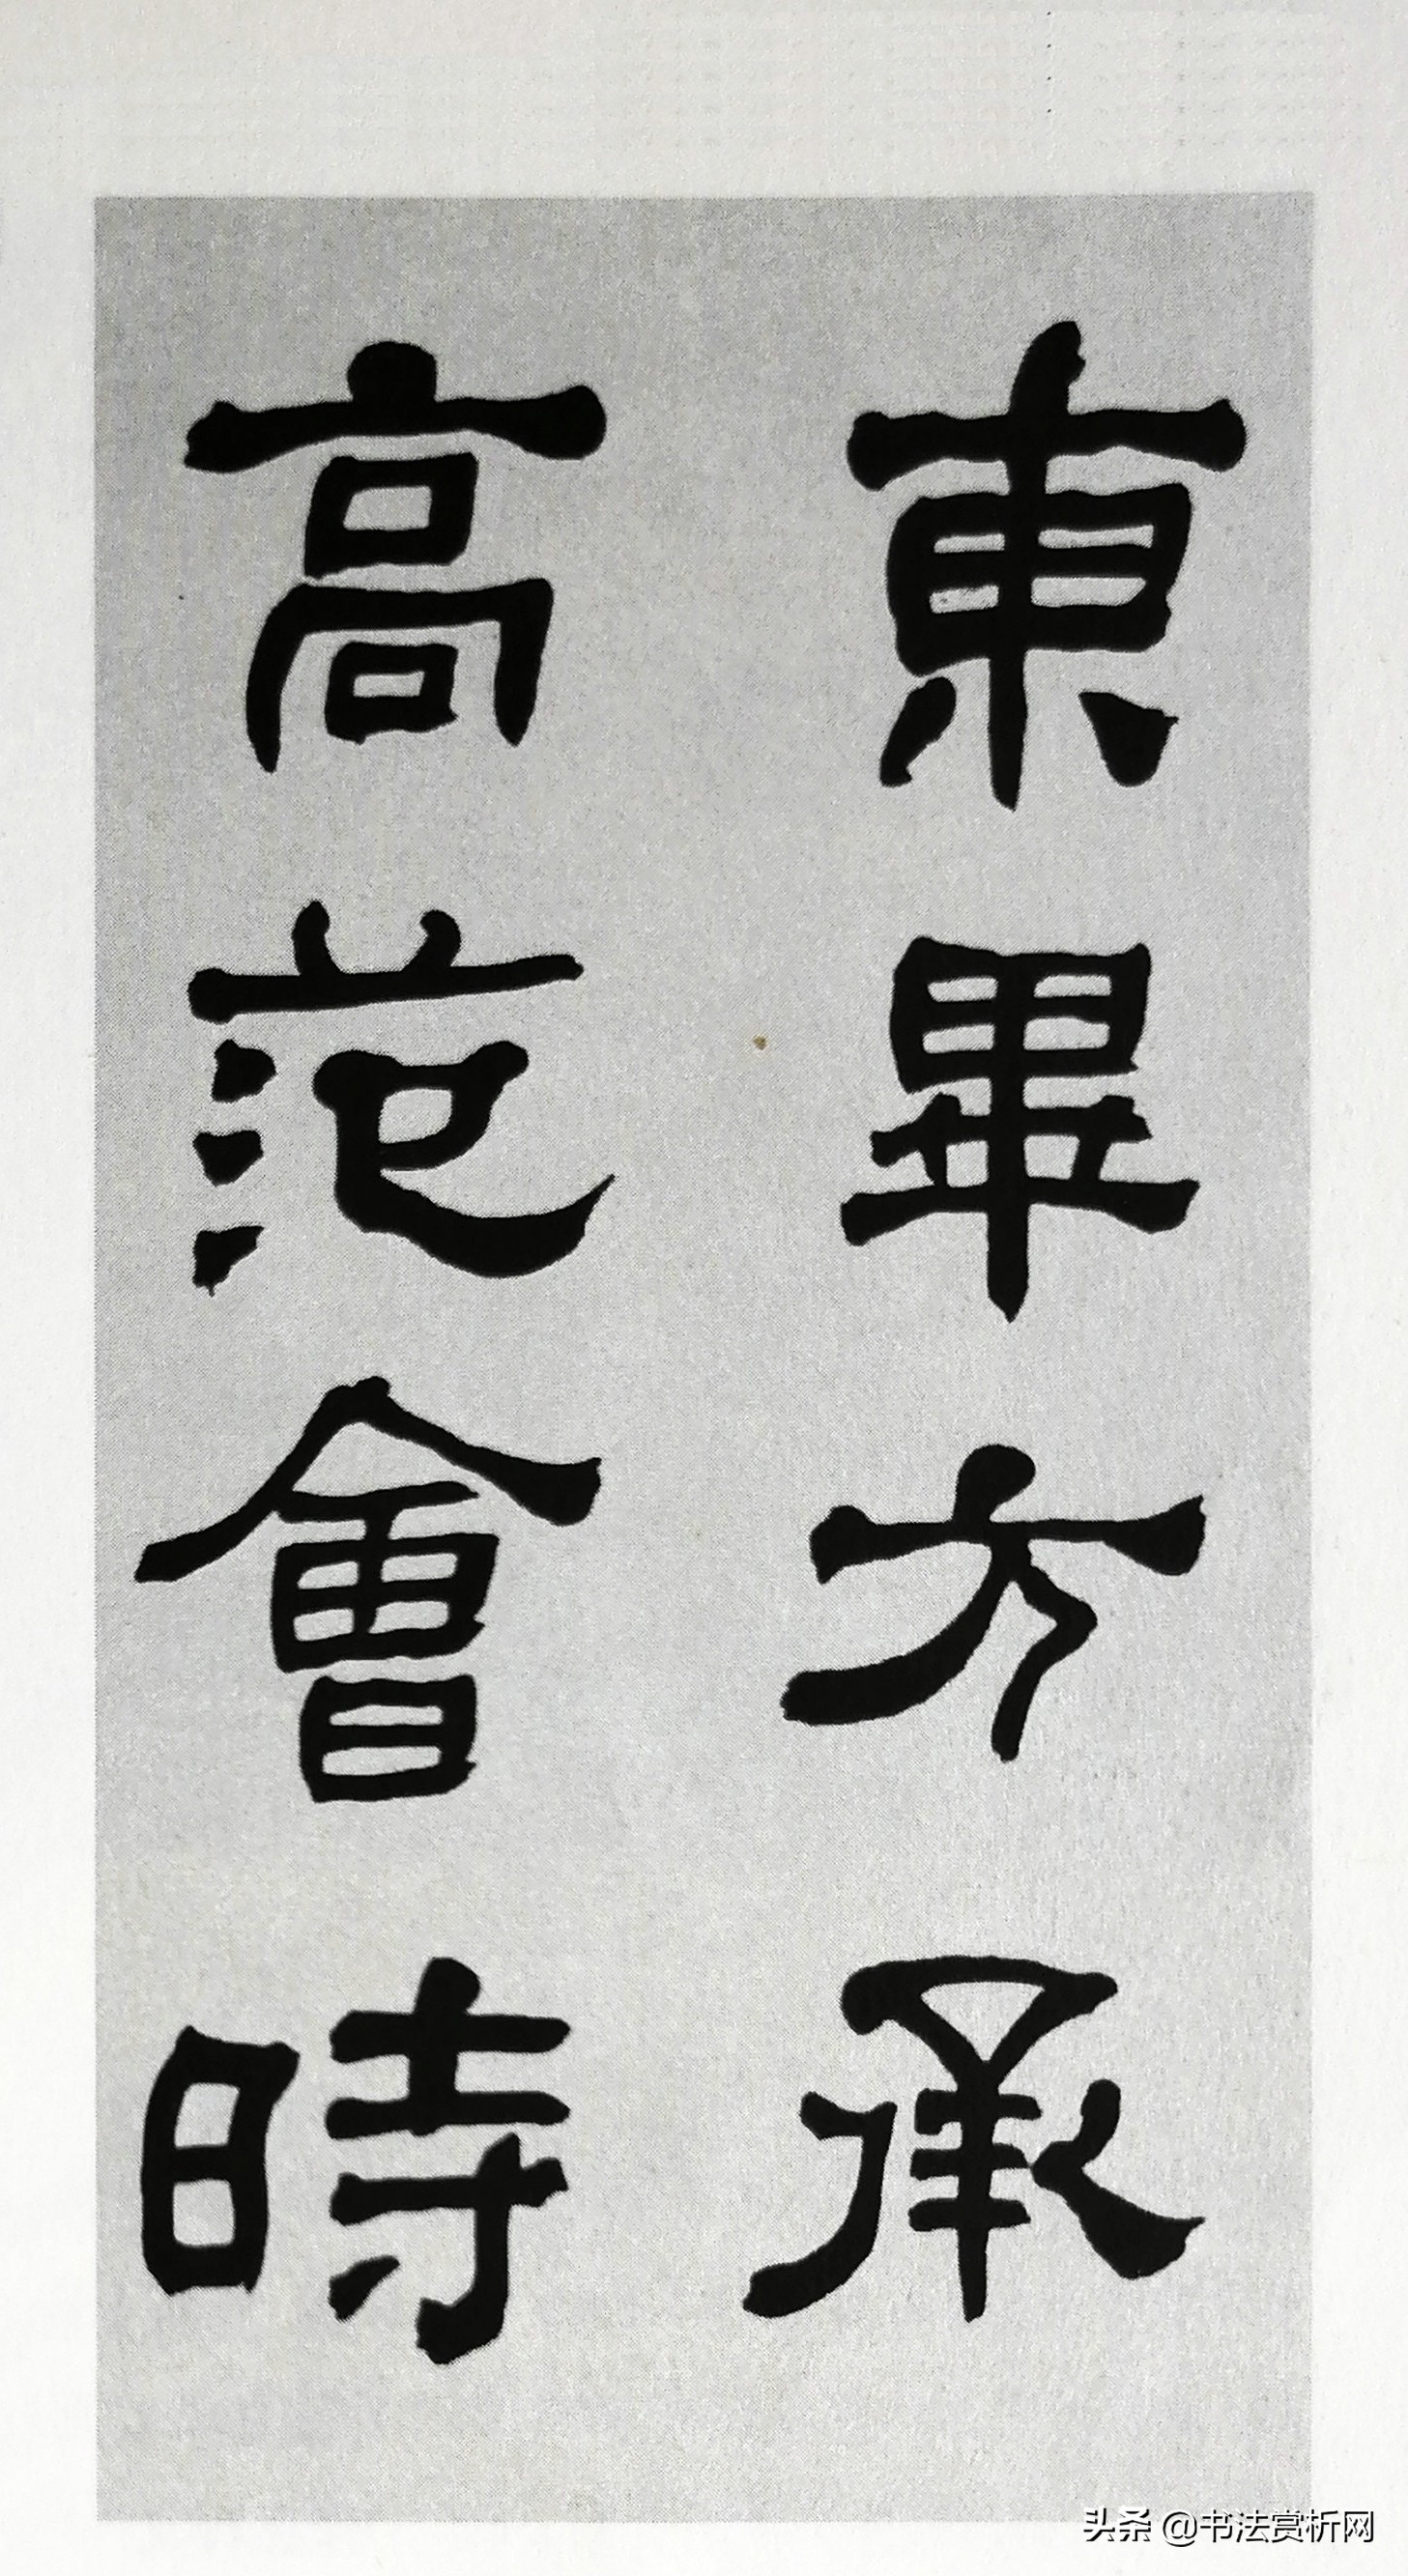 東畢方承
高范會時
头条 @书法赏析网